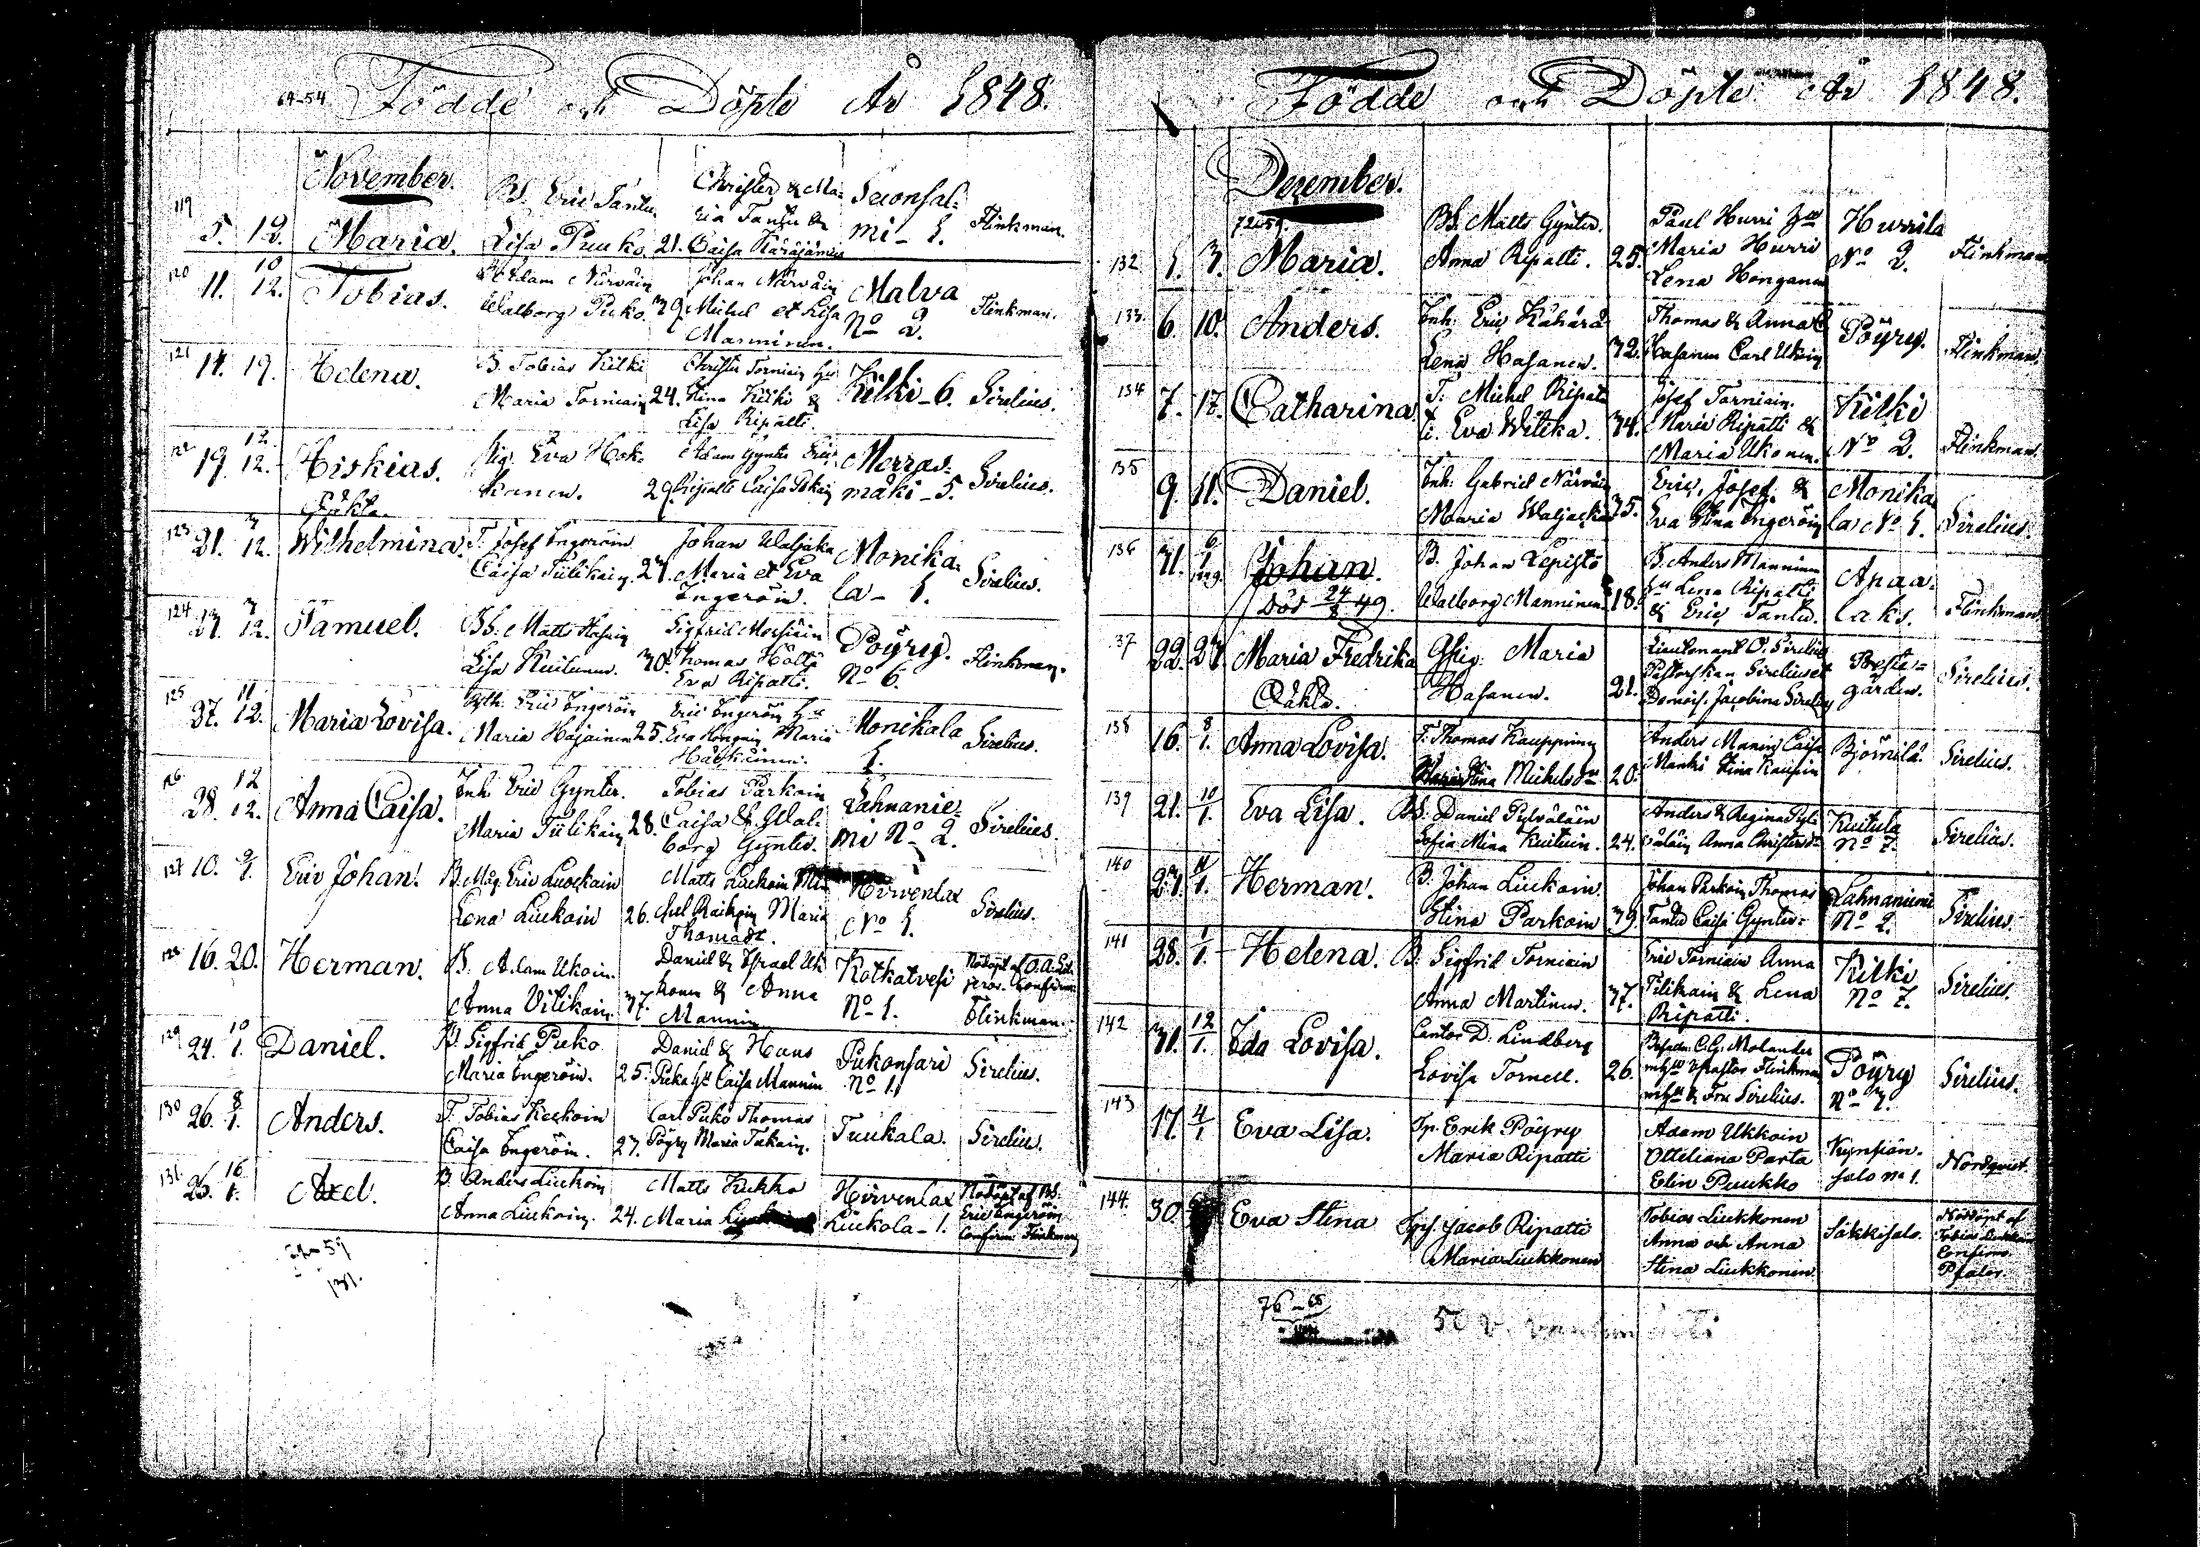 64-54 Födde och Döpte År 1848.
November.
119
5. 12. Maria. Bd. Eric Tantu
Lisa Puuko. 21.
Christer & Ma-
ria Tantu &
Caisa
Suonsal-
mi - 1. Flinkman.
120
11. 10/12. Tobias. Adam Närväin
Walborg Puko. 39.
Johan Närväin
Michel et Lisa
Manninen.
Malva
No 2. Flinkman.
121
14. 19. Helena. B. Tobias Kilki
Maria Torniain 24.
Christer Torniain hu
Stina Kilki &
Lisa Ripatti.
Kilki - 6. Sirelius.
122
19. 12/12. Hiskias.
Oäkta.
Pig. Eva Hok-
kanen. 29.
Adam Gynter Eric
Ripatti Caisa
Merras-
mäki - 5. Sirelius.
123
21. 3/12. Wilhelmina. T. Josef Ingeröin
Caisa Tiilikain. 27.
Johan Waljaka
Maria et Eva
Ingeröin.
Monika-
la - 1. Sirelius.
124
27. 3/12. Samuel. Bd. Matts Hasain
Lisa Kuitunen. 30.
Sigfrid
Thomas Hölttä
Eva Ripatti.
Pöyry.
No 6. Flinkman.
125
27. 11/12. Maria Lovisa. Eric Ingeröin
Maria Hajainen 25.
Eric Ingeröin hu
Eva Hongain Maria
Monikala
1. Sirelius.
126
28. 12/12. Anna Caisa. Inh. Eric Gynter.
Maria Tiilikain 28.
Tobias Parkoin
Caisa & Wal-
borg Gynter.
Lahnanie-
mi No 2. Sirelius.
127 10. 9/1. Eric Johan. B. Måg. Eric Luockain
Lena Liukoin 26.
Matts Liukoin
Axel Raikoin Maria
Thomadr.
Hirvenlax
No 1. Sirelius.
128 16. 20. Herman. B. Adam Ukoin.
Anna Vilikain 37.
Daniel & Israel Uk
konen & Anna
Mannin
Kotkatvesi
No 1.
Nödöpt af
Confirm.
Flinkman.
129 24. 10/1. Daniel. B. Sigfrid Puko.
Maria Ingeröin. 25.
Daniel & Hans
Puka hu Caisa Mannin
Pukonsari
No 1. Sirelius.
130 26. 8/1. Anders. T. Tobias Keckoin
Caisa Ingeröin. 27.
Carl Puko Thomas
Pöyry Maria Takain.
Tuukala. Sirelius.
131 25. 16/1. Axel. B. Anders Liukoin
Anna Liukoin. 24.
Matts Kukko
Maria
Hirvenlax
Liukola - 1.
Nödöpt af Bd.
Eric Ingeröin
Confirm. Flinkman
131.
Födde och Döpte År 1848.
Dezember.
72-59.
132 1. 3. Maria. Bd. Matts Gynter.
Anna Ripatti. 25.
Paul Hurri hu
Maria Hurri
Lena Honganen
Hurrila
No 2. Flinkman
133 6. 10. Anders. Inh. Eric Kähärä
Lena Hasanen. 32.
Thomas & Anna C
Hasanen Carl Ukoin
Pöyry. Flinkman.
134 7. 17. Catharina. T. Michel Ripat-
ti. Eva Wilska. 34.
Josef Torniain.
Maria Ripatti &
Maria Ukonen.
Kilki
No 2. Flinkman.
135
9. 11. Daniel. Inh. Gabriel Närväin
Maria Waljacka 35.
Eric, Josef &
Eva Stina Ingeröin
Monika
la No 1. Sirelius.
136
31. 6/1 Johan.
Död 24/8 49.
B. Johan Lepistö
Walborg Manninen. 18.
B. Anders Manninen
hu Lena Ripatti
& Eric Tantu.
Apaa-
laks. Flinkman
37
22. 27. Maria Fredrika
Oäkta.
Gpig. Maria
Hasanen. 21.
Lieutenant O. Sirelius
Pastorskan Sirelius et
Demois. Jacobina Sirelius
Preste-
gården. Sirelius.
138
16. 8/1. Anna Lovisa. T. Thomas Kauppinen
Stina Michelsdr 20.
Anders Manin Caisa
Manki Stina Kaupin
Björnilä. Sirelius.
139 21. 10/1. Eva Lisa. Bd. Daniel Pylväläin
Sofia Mina Kuituin. 24.
Anders & Regina Pyl-
väläin Anna Christersdr
Kuitula
No 7. Sirelius.
140
27. 11/1. Herman. B. Johan Liukoin.
Stina Parkoin 39.
Johan Parkoin Thomas
Tantu Caisa Gynter.
Lahnaniemi
No 2. Sirelius.
141 28. 1/1. Helena. B. Sigfrid Torniain
Anna Martinen. 37.
Eric Torniain Anna
Tilikain & Lena
Ripatti.
Kilki
No 7. Sirelius.
142
31. 12/1. Ida Lovisa. Cantor D. Lindberg
Lovisa Tornell. 26.
C.G. Molander
Vpastor Flinkman
& Fru Sirelius.
Pöyry
No 7. Sirelius.
143
17. 4/1 Eva Lisa. Tp. Erik Pöyry
Maria Ripatti
Adam Ukkoin
Otteliana Parta
Elin Puukko
Kynsiän-
salo no 1. Nordqvist.
144. 30. Eva Stina Jacob Ripatti
Maria Liukkonen
Tobias Liukkonen
Anna och Anna
Stina Liukkonen
Säkkisalo.
Nöddöpt af
Tobias
Pfaler.
76-68